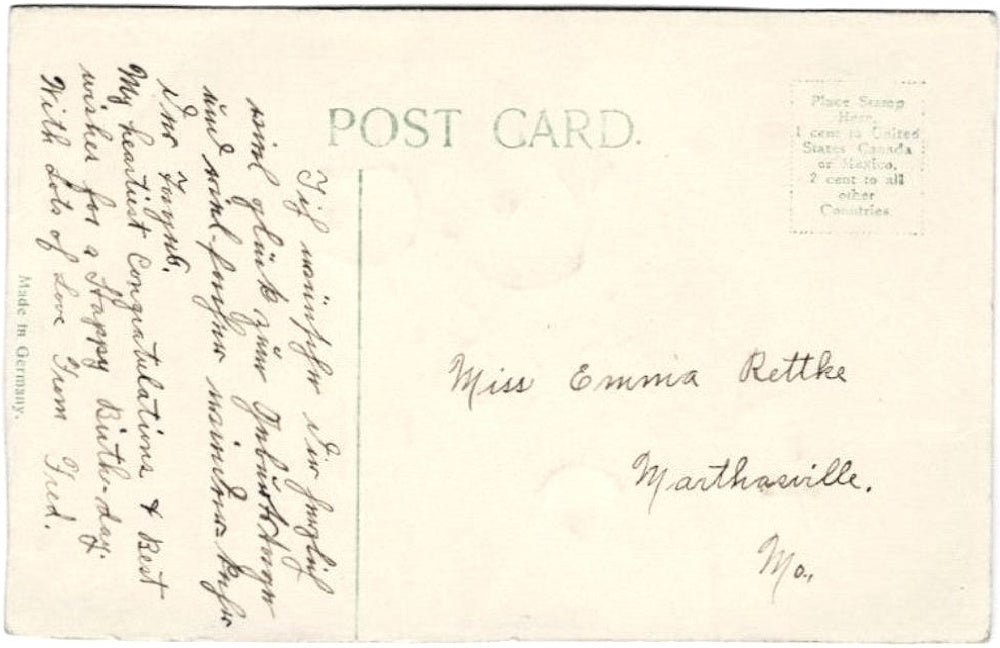 POST CARD.
Place Stamp
Here.
1 cent to United
States Canada
or Mexico,
2 cent to all
other
Countries
Ich wünsche Dir herzlich
viel glück zum Geburtstage
und wieder
Tages.
My heartiest Congratulations & Best
wishes for a Happy Birth-day.
With Lots of Love From Fred.
Made in Germany.
Miss Emma Rettke
Marthasville.
Mo.,